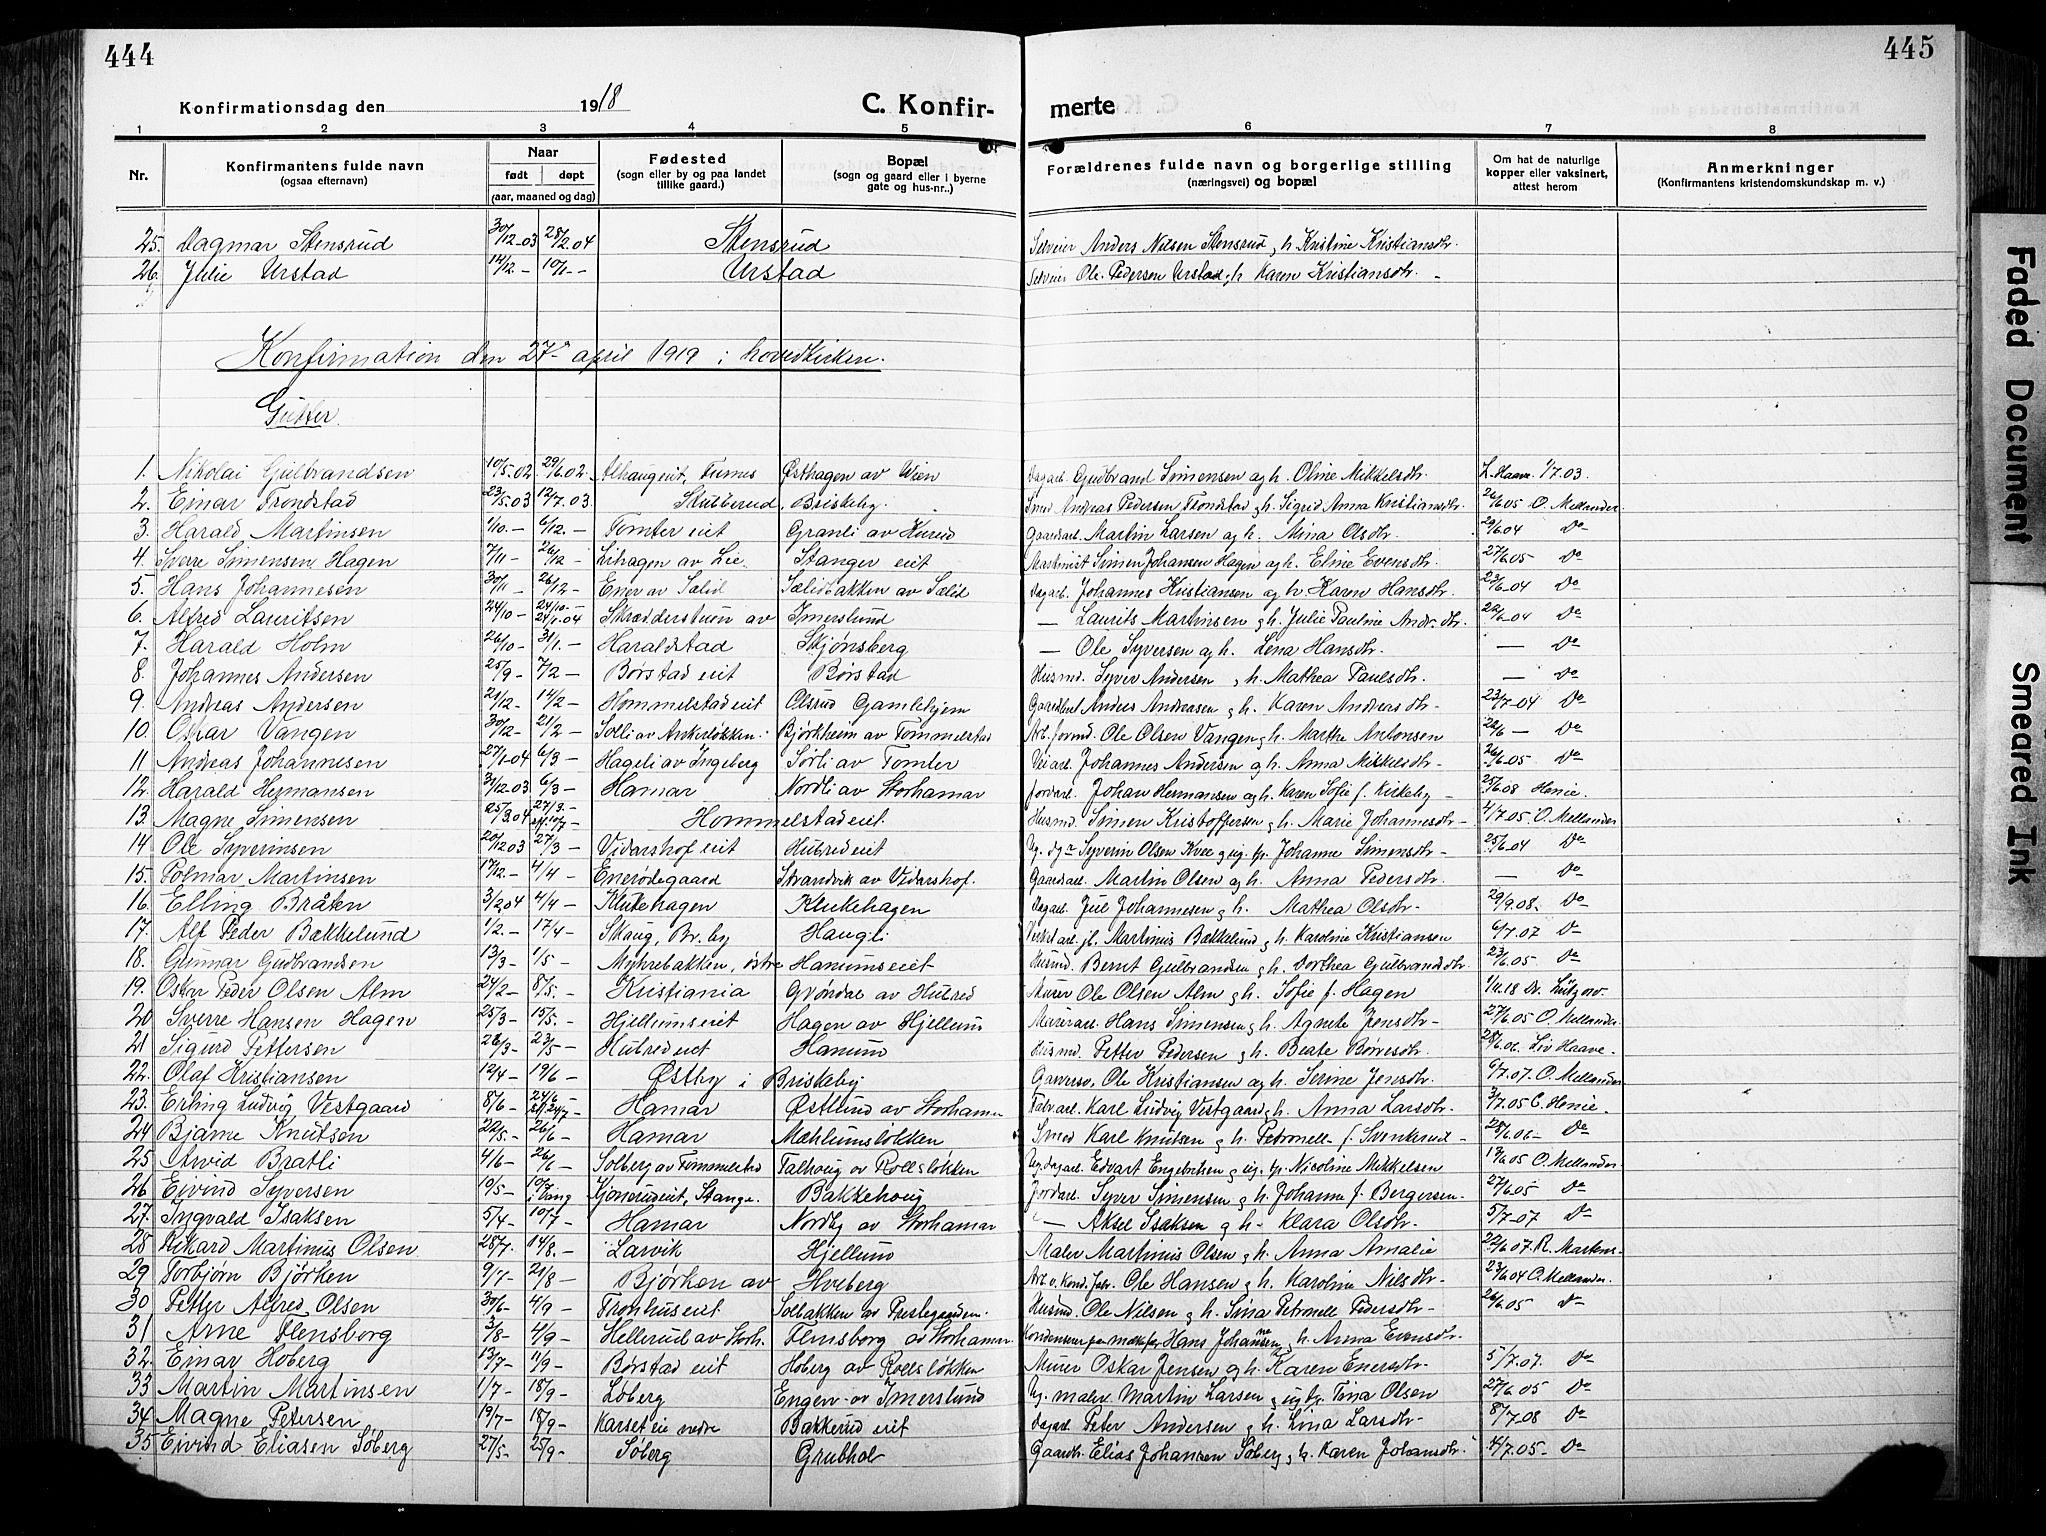 444
445
Konfirmationsdag den 1918
C. Konfir-
merte
1 2 3 4 5 6 7 8
Nr.
Konfirmantens fulde navn
(ogsaa efternavn)
Naar
født døpt
(aar, maaned og dag)
Fødested
(sogn eller by og paa landet
tillike gaard.)
Bopæl
(sogn og gaard eller i byerne
gate og hus-nr..)
Forældrenes fulde navn og borgerlige stilling
(næringsvei) og bopæl
Om hat de naturlige
kopper eller vaksinert,
attest herom
Anmerkninger
(Konfirmantens kristendomskundskap m. v.)
25. Dagmar Stensrud 30/12-03 28/2 04 Stensrud Selveier Anders Nilsen Stensrud g h. Kristine Kristiansdtr.
26. Julie Urstad 14/12- 10/1- Urstad Selveier Ole Pedersen Urstad g h. Karen Kristiansdtr. -
Konfirmation den 27de april 1919 i hovedkirken.
Gutter.
1. Nikolai Gulbrandsen 10/5.02 29/6.02. Alhaugeiet, Furnes Østhagen av Wien Dagarb. Gudbrand Simensen og h. Oline Mikkelsdtr. L. Haave 1/7 03.
2. Einar Trondstad 23/5.03 12/7.03 Skubberud, Briskeby. Smed Andreas Pedersen Trondstad g h. Sigrid Anna Kristiansdtr. 26/6.05 O. Mellander.
3. Harald Martinsen 1/10.- 6/12.- Tomter eiet Granli av Hured Gaardsarb. Martin Larsen og h. Mina Olsdtr. 29/6.04 Do
4. Sverre Simensen Hagen 7/11- 26/12- Lihagen av Lie. Stanger eiet Martinist Simen Johansen Hagen og h. Eline Evensdtr. 27/6.05 Do
5. Hans Johannesen 30/11- 26/12- Ener av Sælid Sælidbakken av Sælid Dagarb. Johannes Kristiansen og h. Karen Hansdtr. 23/6-04 Do
6. Alfred Lauritsen 24/10- 24/10- 24/1.04 Skrædderstuen av Imerslund — Laurits Martinsen g h. Julie Pauline Andr. dtr. 22/6-04 Do
7. Harald Holm 26/10- 31/1.- Haraldstad Skjønsberg — Ole Syversen og h. Lena Hansdtr. — Do
8. Johannes Andersen 25/9- 7/2- Børstad eiet Børstad Husmd. Syver Andersen g h. Mathea Paulsdtr. — Do
9. Andreas Andersen 21/12- 14/2- Hommelstadeiet Olsrud Gamlehjem Anders Andreasen g h. Karen Andreasdtr- 23/7-04 Do
10. Oskar Vangen 30/12- 21/2- Solli av Ankerløkken. Bjørkheim av Tommelstad Arb. formd. Ole Olsen Vangen g h. Marthe Antonsen 22/6- Do
11 Andreas Johannesen 27/1-04 6/3- Hageli av Ingeberg Sørli av Tomter Veiarb. Johannes Andersen g h. Anna Mikkelsdtr- 26/6.05 Do
12. Harald Hermansen 31/12.03 6/3- Hamar Nordli av Storhamar Jordarb. Johan Hermansen og h. Karen Sofie f. Kirkeby - 25/6.08 Henie.
13. Magne Simensen 25/3.04 27/3.- Hommelstadeiet Husmd. Simen Kristoffersen g h. Marie Johannesdtr- 4/7.05. O. Mellander
14 Ole Syverinsen 20/12 03 27/3- Vidarshof eiet Hubred eiet Ug. dgr Syverin Olsen Kvee g ug. p. Johanne Simensdtr- 25/6-04 Do
15. Polmar Martinsen 17/12.- 4/4- Enerødegaard Strandvik av Vidarshof. Gaardsarb. Martin Olsen og h. Anna Pedersdtr. — Do
16. Elling Bråten 3/2 04 4/4- Klukehagen Klukehagen Dagarb. Jul Johannesen g h. Mathea Olsdtr- 29/9.08. Do
17. Alf Peder Bækkelund 1/2.- 17/4- Skaug, Br. by Haugli Verkst arb. jb. Martinus Bækkelund g h. Karoline Kristiansen 6/7.07 Do
18. Gunnar Gudbrandsen 13/3- 1/5- Myhrebakken, østre Hanumseiet Husmd. Bernt Gulbrandsen g h. Dorthea Gulbrandsdtr 23/6.05 Do
19. Oskar Peder Olsen Alm 24/2- 8/5.- Kristiania Gvøndal av Hubred Murer Ole Olsen Alm g h. Sofie f. Hagen 1/11.18 Dr. Lützow.
20 Sverre Hansen Hagen 25/3- 15/5.- Hjellumseiet Hagen av Hjellum Murerarb. Hans Simensen g h. Agnete Jensdtr- 27/6.05 O. Mellander.
21 Sigurd Pettersen 26/3- 23/5- Hubred eiet Hanum Husmd. Petter Pedersen g h. Beate Børresdtr. 28/6.06. Liv Haave.
22. Olaf Kristiansen 12/4- 19/6- Østby i Briskeby Garverso. Ole Kristiansen og h. Serine Jensdtr. 9/7.07. O. Mellander
23. Erling Ludvig Vestgaard 8/6- 24/6- Hamar Østlund av Storhamar Fabr arb. Karl Ludvig Vestgaard g h. Anna Larsdtr- 3/7.05 C. Henie.
24 Bjarne Knutsen 22/5.- 26/6- Hamar Mæhlumsløkken Smed Karl Knutsen g h. Petronelle f. Svenkerud- 28/6.06.- Do
25 Arvid Bratli 4/6- 26/6- Solberg av Tommelstad Falhoug av Rollsløkken Ug. dagarb. Edvart Engebretsen g ug. p. Nicoline Mikkelsen 19/6 05 O. Mellander.
26 Eivind Syversen 19/5- 10/7- i Vang Kjonerudeiet, Stange. Bakkehoug Jordarb. Syver Simensen g h. Johanne f. Bergersen. 27/6.05 Do
27. Ingvald Isaksen 5/4- 10/7 Hamar Nordby av Storhamar — Aksel Isaksen g h- Klara Olsdtr- 5/7-07 Do
28 Rikard Martinus Olsen. 28/7. 14/8.- Larvik Hjellum Maler Martinus Olsen g h. Anna Amalie 22/6 07. R. Martens.
29 Torbjørn Bjørken 9/7- 21/8- Bjørken av Hveberg Arb. v. Kond. fabr. Ole Hansen g h. Karoline Nilsdtr- 23/6 04 O. Mellander.
30 Petter Alfred Olsen 30/6- 4/9- Fronhuseiet Solbakken av Prestegaarden. Husmd. Ole Nilsen g h. Lina Petronelle Pedersdtr- 26/6.05 Do
31 Arne Flensborg 3/8- 4/9- Hellerud av Storh. Flensborg av Storhamar Hans Johansen g h. Anna Evensdtr-
32. Einar Hoberg 13/7- 11/9- Børstad eiet Hoberg av Rollsløkken Murer Oskar Jensen g h. Karen Enersdtr- 5/7.07. Do
33 Martin Martinsen 1/7- 18/9- Løberg Engen av Imerslund Ug. maler. Martin Larsen g ug p. Tina Olsen 27/6.05 Do
34 Magne Petersen 19/7- 18/9- Karset eie nedre Bakkerud eiet Dagarb. Peter Andersen g h. Lina Larsdtr- 8/7.08 Do
35 Eivind Eliasen Søberg 27/5- 25/9- Søberg Grubhol Gaardbr. Elias Johansen Søberg g h. Karen Johansdtr. 4/7.05- Do
Faded Document
Smeared Ink